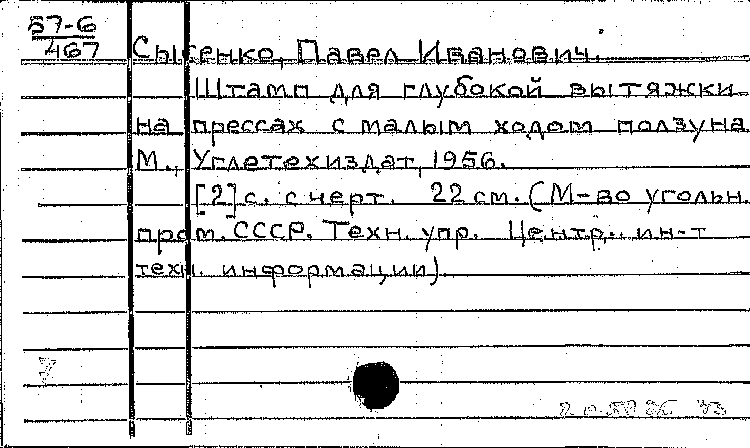 57-6
467
Сысенко, Павел Иванович.
Штамп для глубокой вытяжки
на прессах с малым ходом ползуна
М., Углетехиздат, 1956.
[2] с. с черт. 22 см. (М-во угольн.
пром. СССР. Техн. упр. Центр. ин-т
техн. информации).